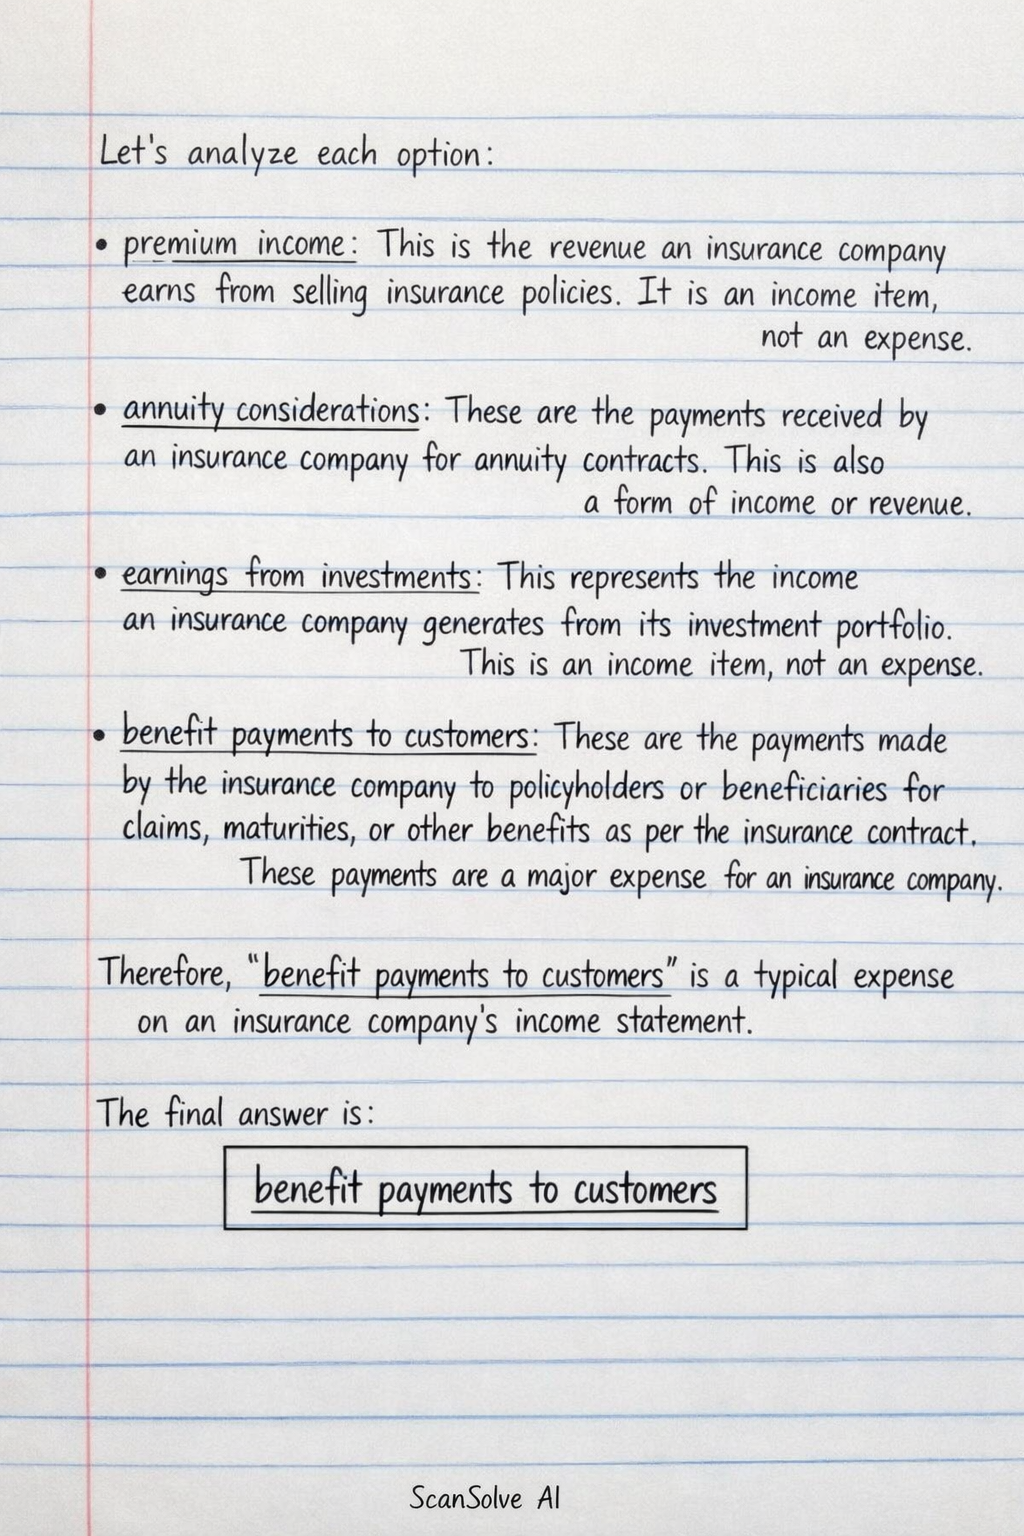 Let's analyze each option:
• premium income: This is the revenue an insurance company
earns from selling insurance policies. It is an income item,
not an expense.
• annuity considerations: These are the payments received by
an insurance company for annuity contracts. This is also
a form of income or revenue.
• earnings from investments: This represents the income
an insurance company generates from its investment portfolio.
This is an income item, not an expense.
• benefit payments to customers: These are the payments made
by the insurance company to policyholders or beneficiaries for
claims, maturities, or other benefits as per the insurance contract.
These payments are a major expense for an insurance company.
Therefore, "benefit payments to customers" is a typical expense
on an insurance company's income statement.
The final answer is:
benefit payments to customers
ScanSolve AI